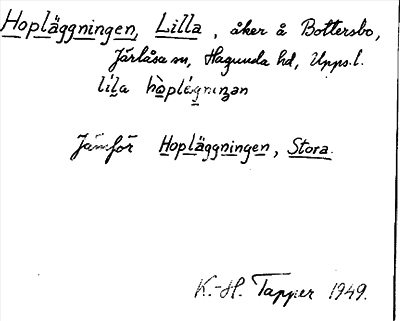 Hopläggningen, Lilla, åker å Bottersbo,
Järlåsa sn, Hagunda hd, Upps. l.
Jämför Hopläggningen, Stora.
K.-H. Tapper 1949.